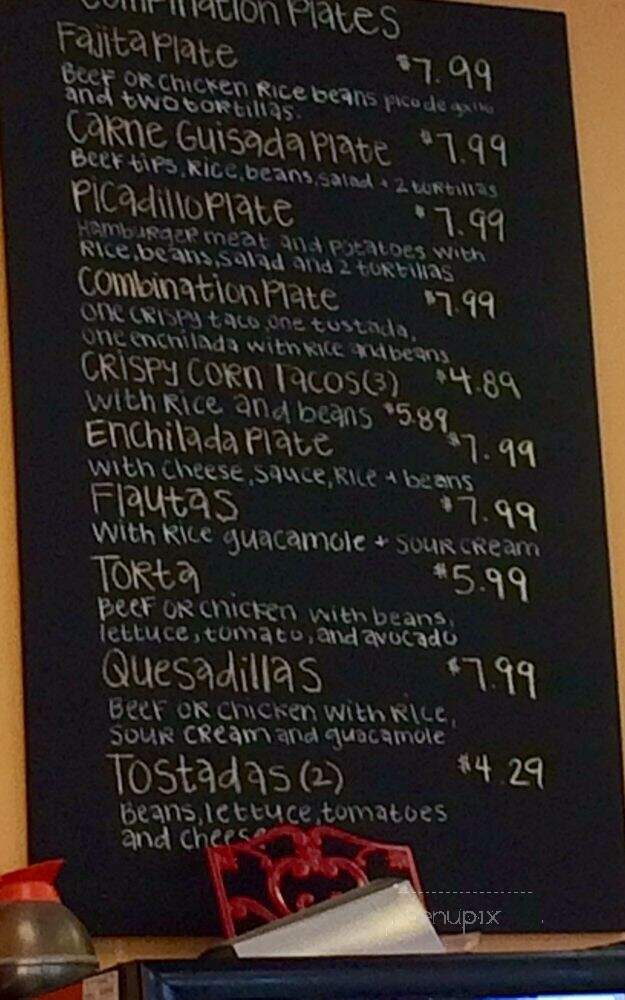 Combination Plates
Fajita Plate $7.99
Beef OR Chicken Rice beans pico de gallo
and two tortillas.
Carne Guisada Plate $7.99
Beef tips, Rice, beans, salad + 2 tortillas
Picadillo Plate $7.99
Hamburger meat and potatoes with
Rice, beans, salad and 2 tortillas
Combination Plate $7.99
One crispy taco, one tostada,
one enchilada with Rice and beans
Crispy Corn Tacos (3) $4.89
with Rice and beans $5.89
Enchilada Plate $7.99
with cheese, sauce, Rice + beans
Flautas $7.99
With Rice guacamole + sour cream
Torta $5.99
Beef OR chicken with beans,
lettuce, tomato, and avocado
Quesadillas $7.99
Beef OR Chicken with Rice,
sour cream and guacamole
Tostadas (2) $4.29
Beans, lettuce, tomatoes
and cheese
menupix